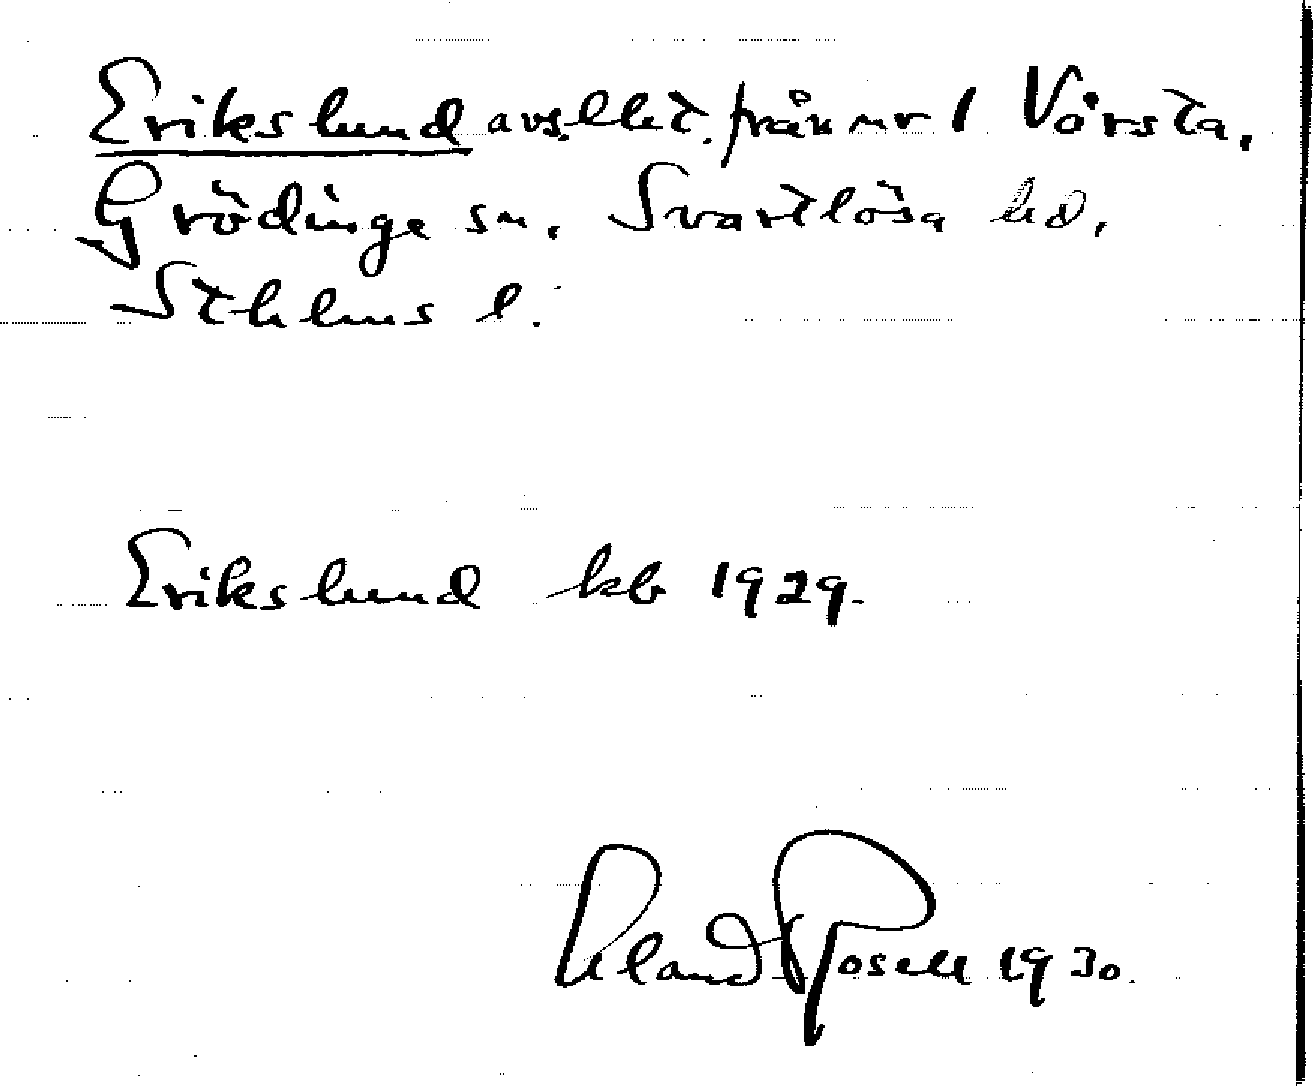 Erikslund avs. lht. från nr 1 Vårsta,
Grödinge sn, Svartlösa hd,
Sthlms l.
Erikslund kb 1929.
Erland Rosell 1930.